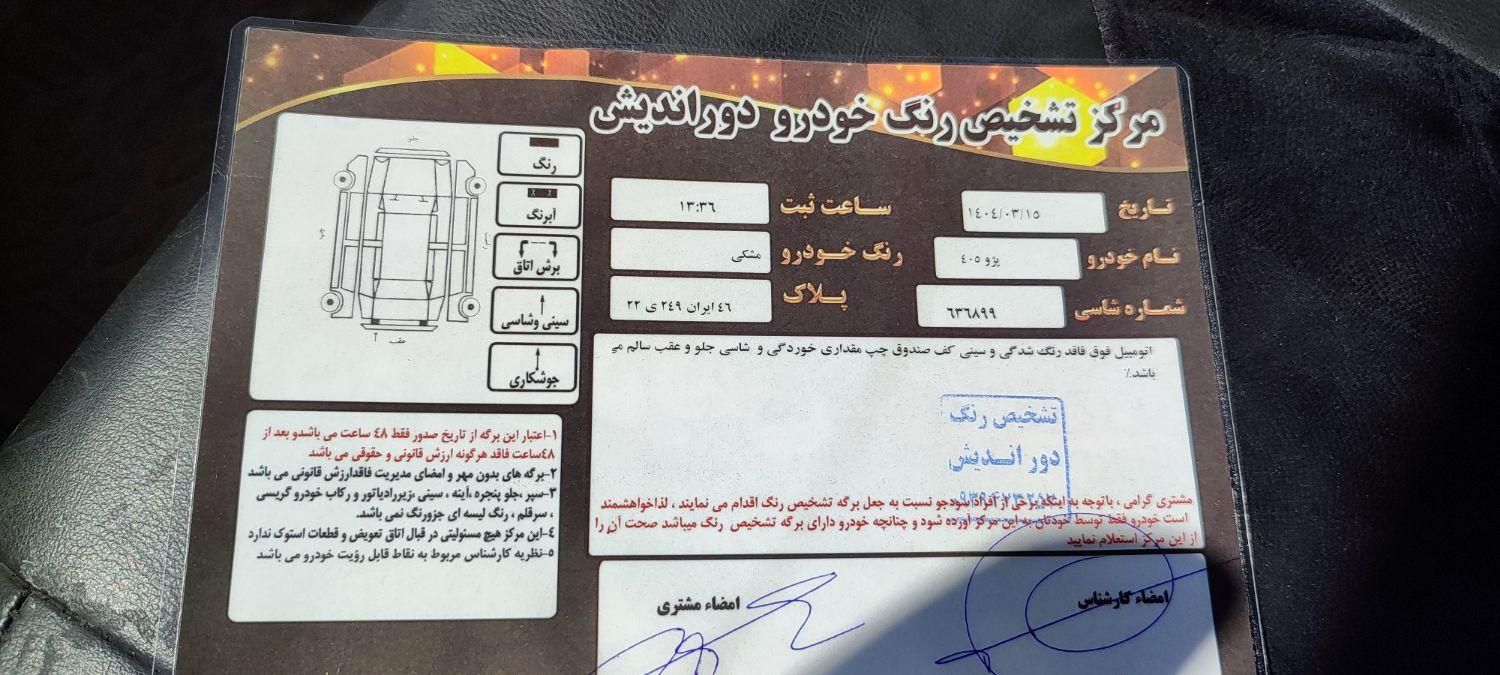 مرکز تشخیص رنگ خودرو دوراندیش
تاریخ
١٤٠٤/٠٣/١٥
ساعت ثبت
١٣:٣٦
نام خودرو
پژو ٤٠٥
رنگ خودرو
مشکی
شماره شاسی
٦٣٦٨٩٩
پلاک
٤٦ ایران ٢٤٩ ی ٢٢
اتومبیل فوق فاقد رنگ شدگی و سینی کف صندوق چپ مقداری خوردگی و شاسی جلو و عقب سالم می
باشد.٪
تشخیص رنگ
دور اندیش
مشتری گرامی ، باتوجه به اینکه برخی از افراد سودجو نسبت به جعل برگه تشخیص رنگ اقدام می نمایند ، لذاخواهشمند
است خودرو فقط توسط خودتان به این مرکز آورده شود و چنانچه خودرو دارای برگه تشخیص رنگ میباشد صحت آن را
از این مرکز استعلام نمایید
امضاء کارشناس
امضاء مشتری
جلو
چپ
راست
عقب
رنگ
آبرنگ
برش اتاق
سینی وشاسی
جوشکاری
١-اعتبار این برگه از تاریخ صدور فقط ٤٨ ساعت می باشدو بعد از
٤٨ساعت فاقد هرگونه ارزش قانونی و حقوقی می باشد
٢-برگه های بدون مهر و امضای مدیریت فاقدارزش قانونی می باشد
٣-سپر ،جلو پنجره ،آینه ، سینی ،زیررادیاتور و رکاب خودرو گریسی
، سرقلم ، رنگ لیسه ای جزورنگ نمی باشد.
٤-این مرکز هیچ مسئولیتی در قبال اتاق تعویض و قطعات استوک ندارد
٥-نظریه کارشناس مربوط به نقاط قابل رؤیت خودرو می باشد